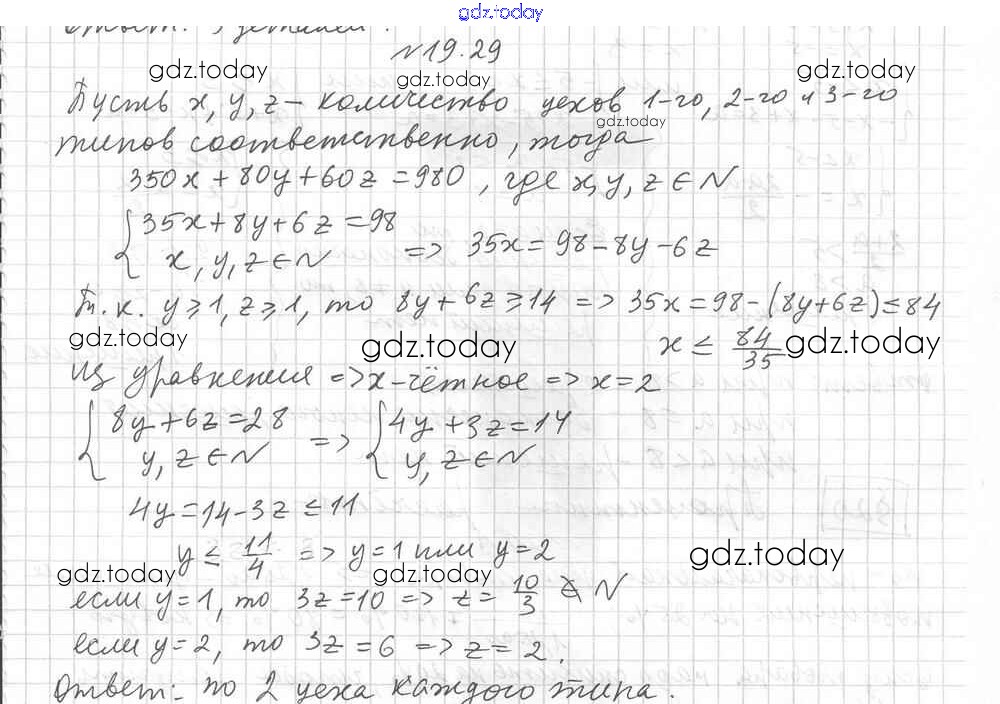 gdz.today
Ответ: 3 детали.
№19.29
gdz.today gdz.today gdz.today
Пусть x, y, z – количество цехов 1-го, 2-го и 3-го
gdz.today
типов соответственно, тогда
350x + 80y + 60z = 980, где x, y, z ∈ N
{ 35x + 8y + 6z = 98
x, y, z ∈ N => 35x = 98 – 8y – 6z
Т.к. y ≥ 1, z ≥ 1, то 8y + 6z ≥ 14 => 35x = 98 – (8y + 6z) ≤ 84
gdz.today gdz.today x ≤ 84/35 gdz.today
из уравнения => x – чётное => x = 2
{ 8y + 6z = 28 => { 4y + 3z = 14
y, z ∈ N y, z ∈ N
4y = 14 – 3z ≤ 11
y ≤ 11/4 => y = 1 или y = 2
gdz.today gdz.today gdz.today
если y = 1, то 3z = 10 => z = 10/3 ∉ N
если y = 2, то 3z = 6 => z = 2.
Ответ: по 2 цеха каждого типа.